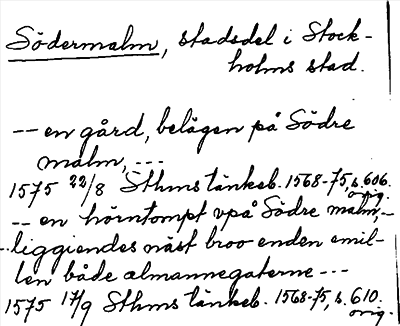 Södermalm, stadsdel i Stock-
holms stad.
-- en gård, belägen på Södre
malm, ---
1575 22/8 Sthms tänkeb. 1568-75, s. 606.
orig.
-- en hörntompt vpå Södre malm,-
-- liggiendes näst broo enden emil-
len både almannegaterne ---
1575 17/9 Sthms tänkeb. 1568-75, s. 610.
orig.